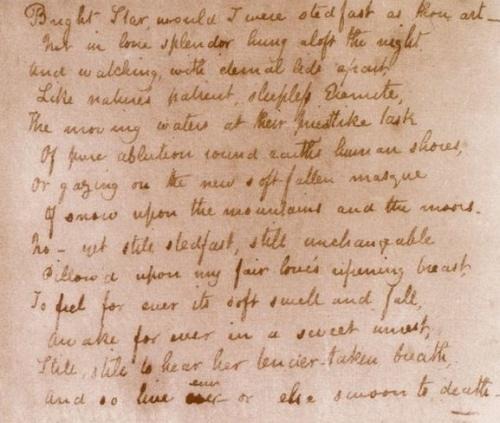 Bright Star, would I were stedfast as thou art —
Not in lone splendor hung aloft the night
And watching, with eternal lids apart,
Like nature's patient, sleepless Eremite,
The moving waters at their priestlike task
Of pure ablution round earth's human shores,
Or gazing on the new soft fallen masque
Of snow upon the mountains and the moors.
No — yet still stedfast, still unchangeable
Pillow'd upon my fair love's ripening breast,
To feel for ever its soft swell and fall,
Awake for ever in a sweet unrest,
Still, still to hear her tender-taken breath,
And so live ever — or else swoon to death —